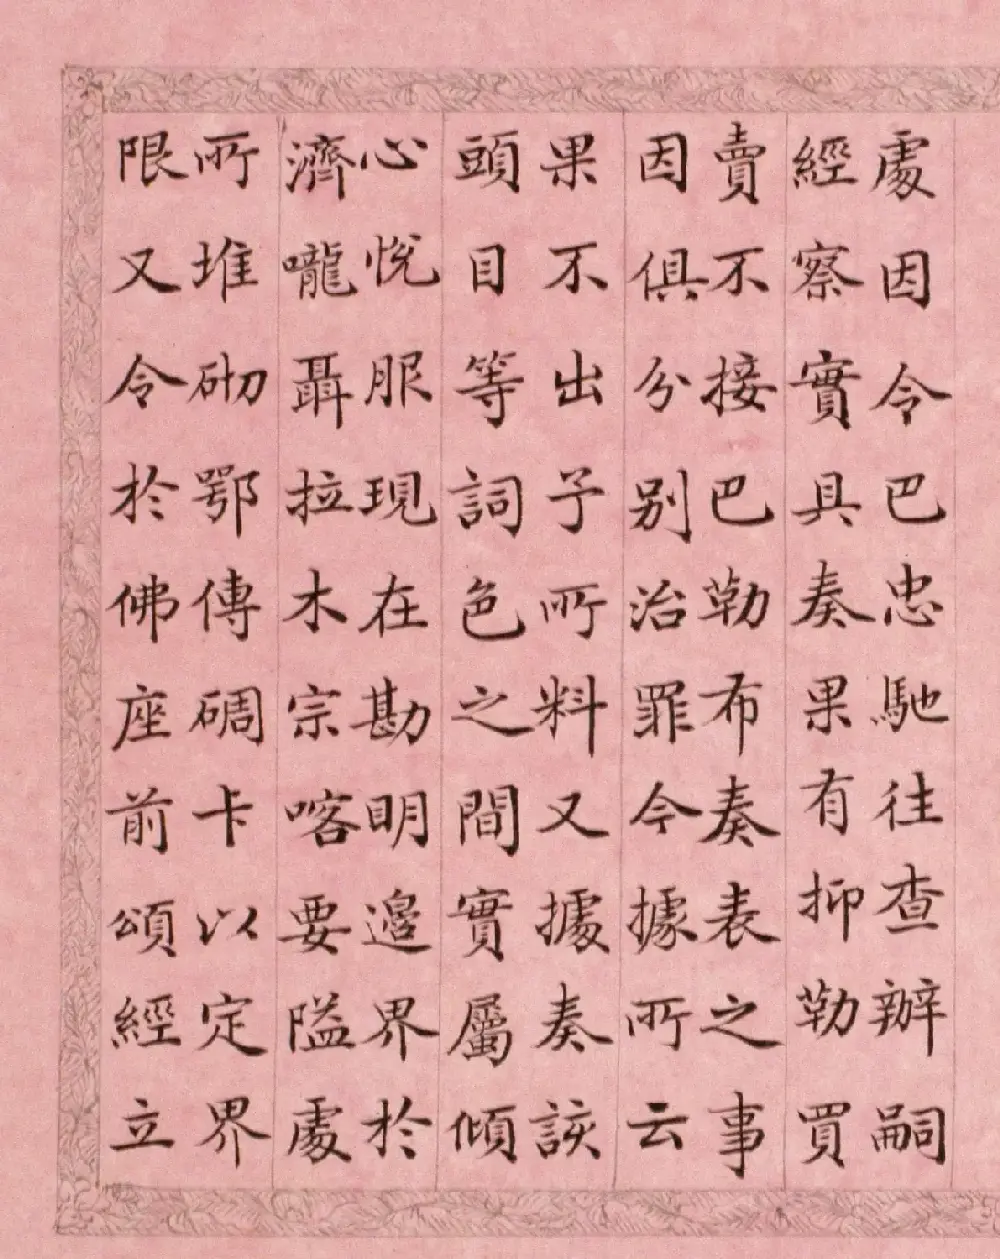 處因令巴忠馳往查辦嗣
經察實具奏果有抑勒買
賣不接巴勒布奏表之事
因俱分别治罪今據所云
果不出予所料又據奏該
頭目等詞色之間實屬傾
心悅服現在勘明邊界於
濟嚨聶拉木宗喀要隘處
所堆砌鄂傳碉卡以定界
限又令於佛座前頌經立